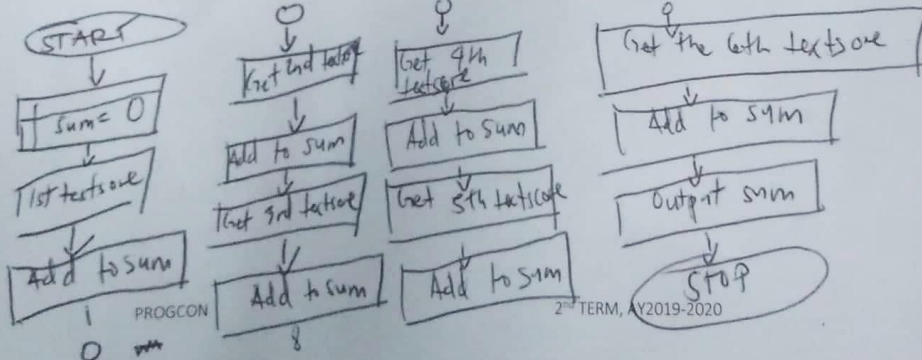 START
sum= 0
1st testsore
Add to sum
Get 2nd
Add to sum
Get 3rd textsore
Add to sum
Get 4th
textscore
Add to sum
Get 5th textscore
Add to sum
Get the 6th textsore
Add to sum
Output sum
STOP
PROGCON
2nd TERM, AY2019-2020